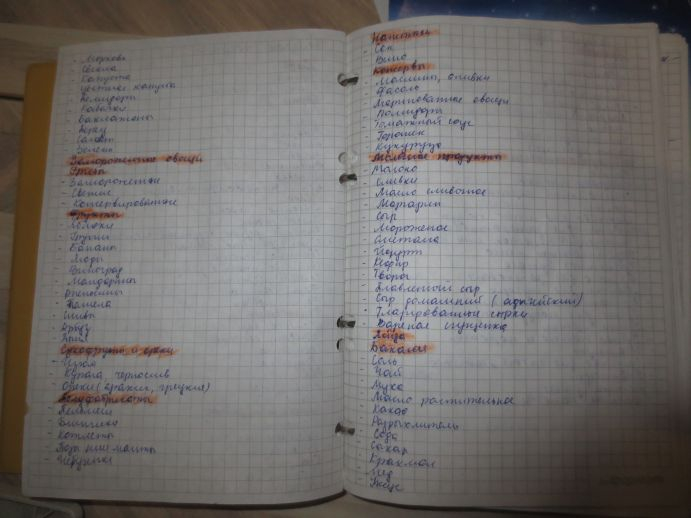 - Морковь
- Свекла
- Капуста
- Цветная капуста
- Помидоры
- Кабачки
- Баклажаны
- Перец
- Салат
- Зелень
Замороженные овощи
Грибы
- Замороженные
- Свежие
- Консервированные
Фрукты
- Яблоки
- Груши
- Бананы
- Виноград
- Мандарины
- Апельсины
- Сливы
- Арбуз
- Дыня
Сухофрукты и орехи
- Изюм
- Курага, чернослив
- Орехи (арахис, грецкий)
Полуфабрикаты
- Пельмени
- Блинчики
- Котлеты
- Чебуреки
Напитки
- Сок
- Вино
Консервы
- Маслины, оливки
- Фасоль
- Маринованные овощи
- Помидоры
- Томатный соус
- Горошек
- Кукуруза
Молочные продукты
- Молоко
- Сливки
- Масло сливочное
- Маргарин
- Сыр
- Мороженое
- Сметана
- Йогурт
- Кефир
- Творог
- Плавленый сыр
- Сыр домашний (адыгейский)
- Глазированные сырки
- Вареная сгущенка
Яйца
Бакалея
- Соль
- Чай
- Мука
- Масло растительное
- Какао
- Разрыхлитель
- Сода
- Сахар
- Крахмал
- Мед
- Уксус